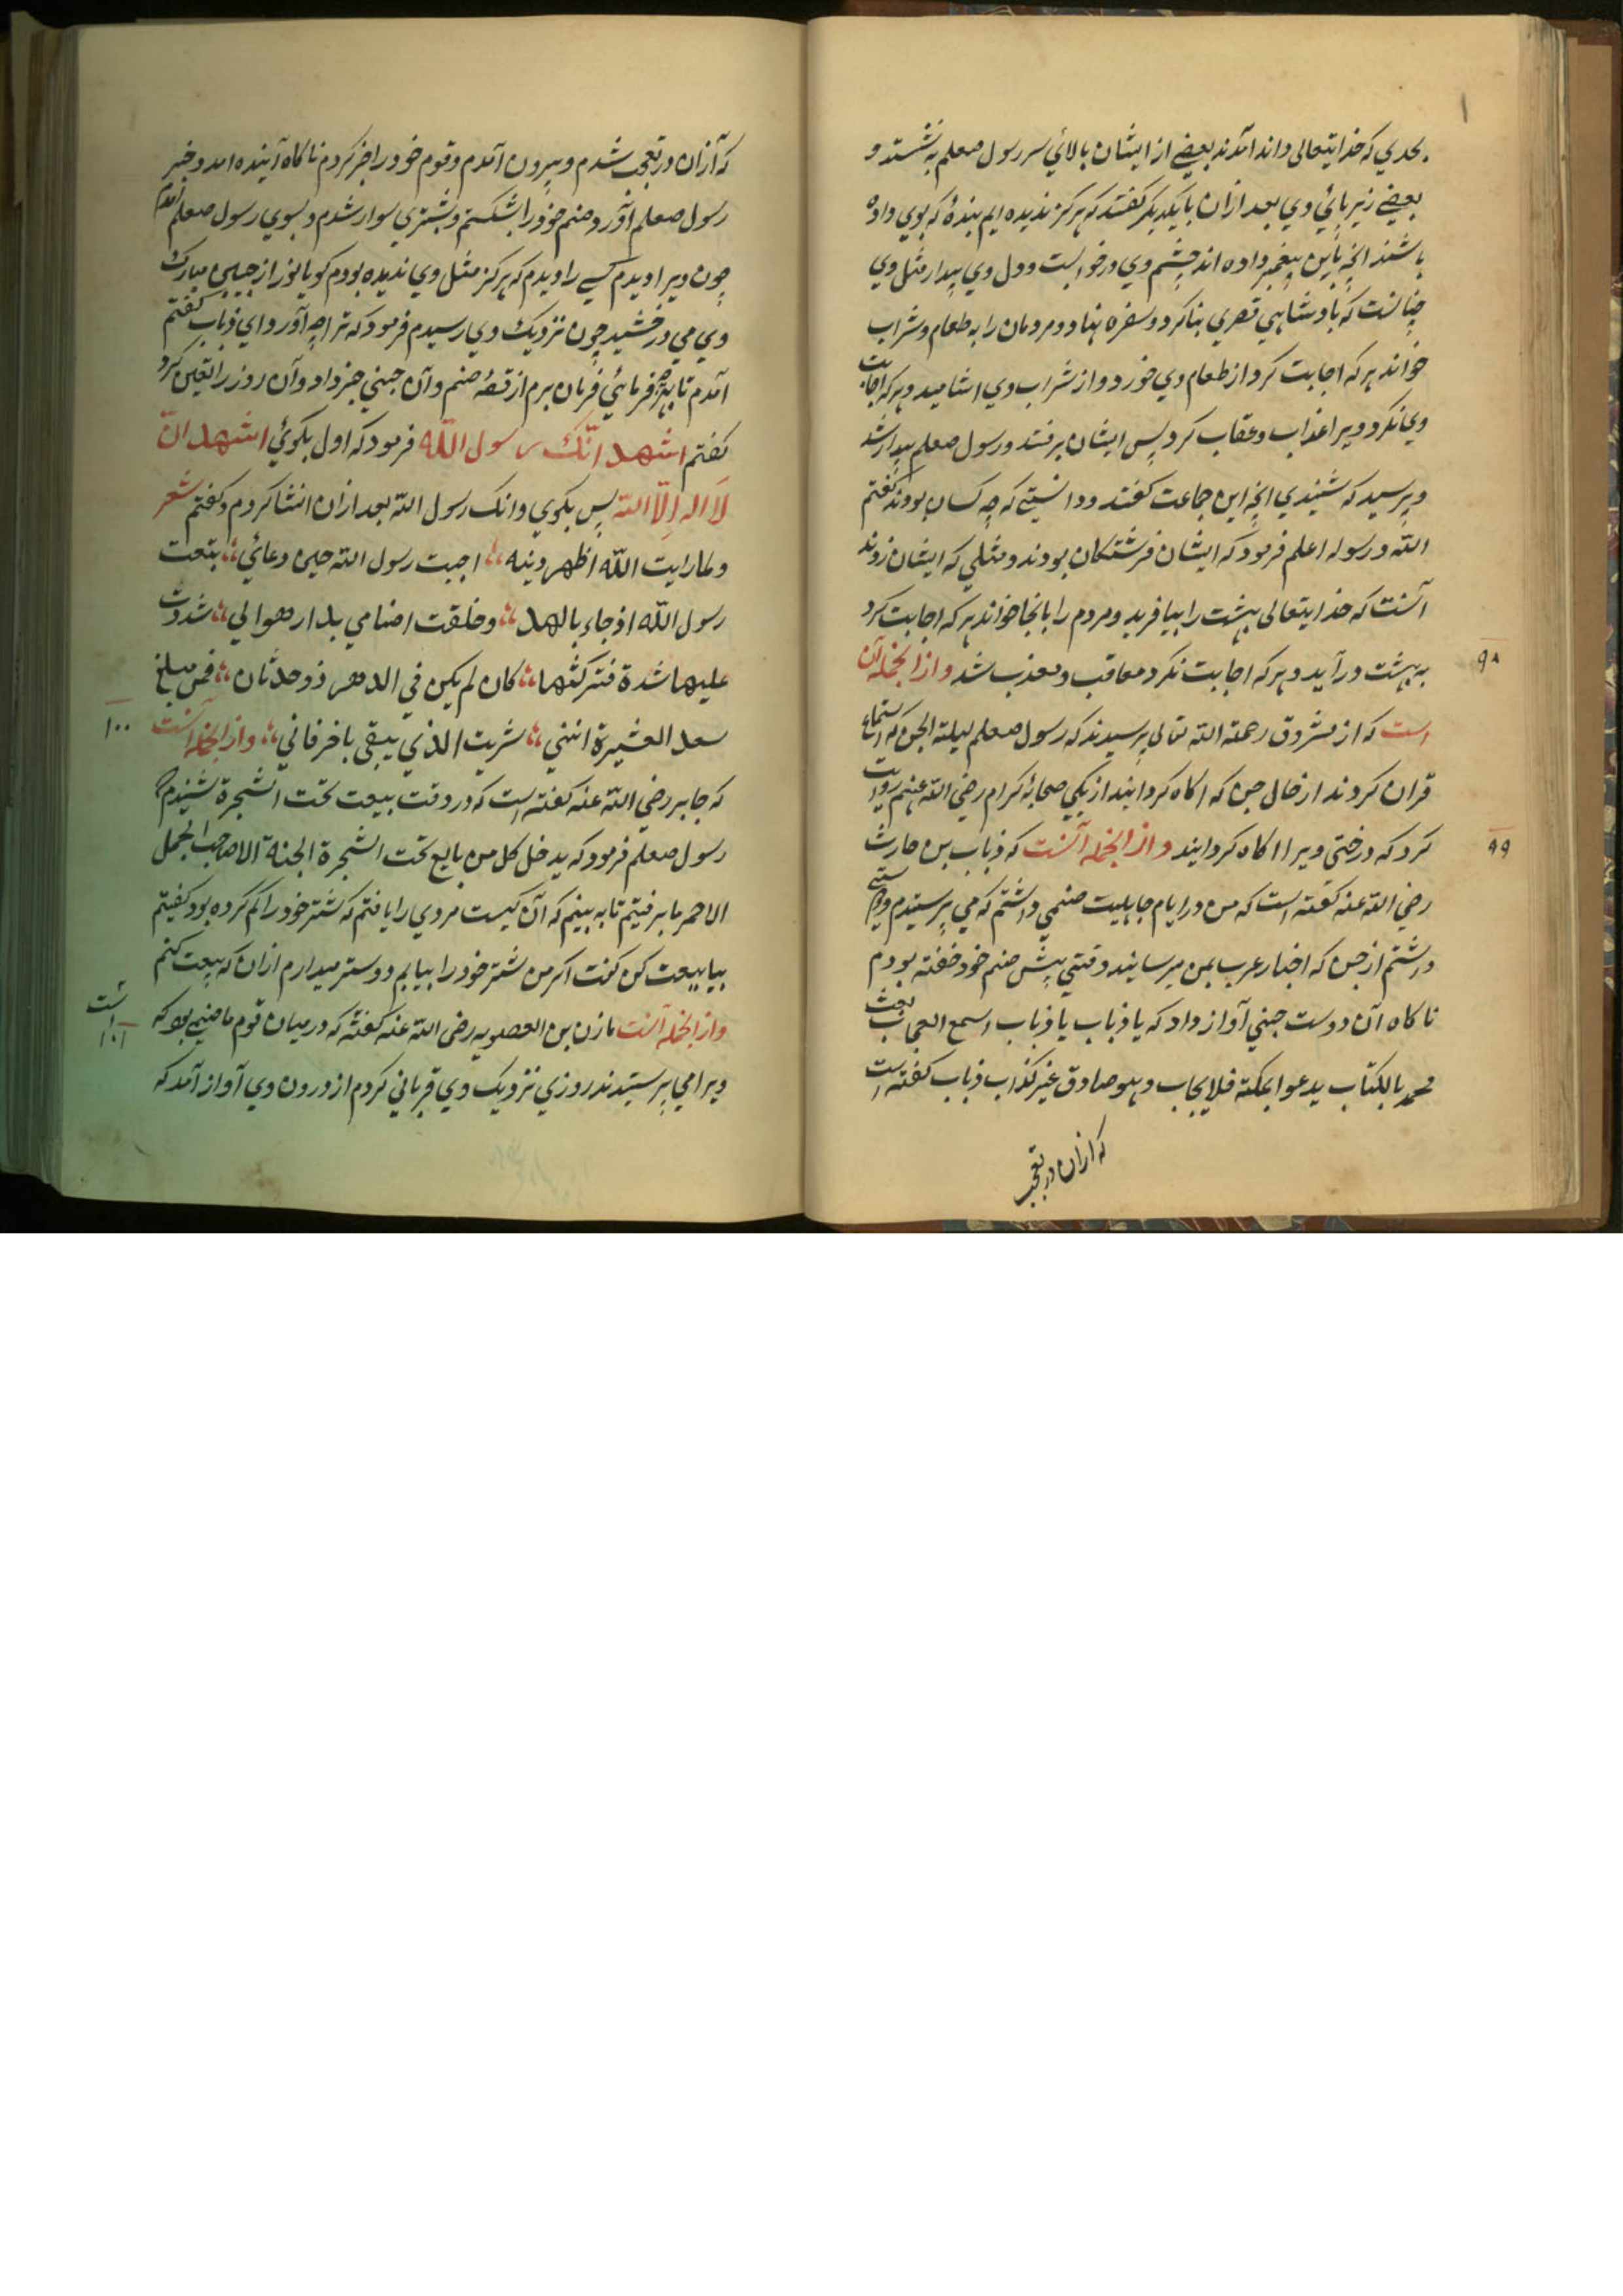 بحدي که خدایتعالی داند آمدند بعضے از ایشان بالائي سر رسول صعلم به نشستند و
بعضے زیر پائي وي بعد ازان بایکدیکر کفتند که هرکز ندیده ایم بندهٔ که بوي داده
باشند انچه باین پیغمبر داده اند چشم وي در خوابست و دل وي بیدار مثل وي
چنانست که بادشاهي قصري بنا کرد و سفره نهاد و مردمان را به طعام و شراب
خواند هر که اجابت کرد از طعام وي خورد و از شراب وي اشامید و هر که اجابت
وي نکرد ویرا عذاب و عقاب کرد پس ایشان برفتند و رسول صعلم بیدار شد
و پرسید که شنیدي انچه این جماعت کفتند و دانستي که چه کسان بودند کفتم
الله و رسوله اعلم فرمود که ایشان فرشتکان بودند و مثلي که ایشان زدند
آنست که خدایتعالی بهشت را بیافرید و مردم را بانجا خواند هر که اجابت کرد
به بهشت در آید و هر که اجابت نکرد معاقب و معذب شد و از انجمله آن
۹۸
است که از مشروق رحمة الله تعالی پرسیدند که رسول صعلم لیلة الجن که استماع
قران کردند از حال جن که اکاه کردانید از یکي صحابهٔ کرام رضي الله عنهم روایت
کرد که درختي ویرا اکاه کردانید و از انجمله آنست که ذباب بن حارث
۹۹
رضي الله عنه کفته است که من در ایام جاهلیت صنمي داشتم که مي پرستیدم و دوستے
داشتم از جن که اخبار عرب بمن میرسانید وقتي پیش صنم خود خفته بودم
ناکاه آن دوست جني آواز داد که یا ذباب یا ذباب اسمع العجاب بعث
محمد بالکتاب یدعوا بمکة فلا یجاب و هو صادق غیر کذاب ذباب کفته است
که ازان در تعجب
که آزان در تعجب شدم و بیرون آمدم و قوم خود را خبر کردم ناکاه آینده امد و خبر
رسول صعلم آورد و صنم خود را بشکستم و بشتري سوار شدم و بسوي رسول صعلم آمدم
چون ویرا دیدم کسے را دیدم که هرکز مثل وي ندیده بودم کویا نور از جبین مبارک
وي مي درخشید چون نزدیک وي رسیدم فرمود که ترا چه آورد اي ذباب کفتم
آمدم تا بهرچه فرمائي فرمان برم از قصهٔ صنم و آن جني خبر داد و آن روز را تعین کرد
کفتم اشهد انّک رسول اللّه فرمود که اول بکوئي اشهد انّ
لا اله الّا اللّه پس بکوي و انک رسول الله بعد ازان انشا کردم و کفتم شعر
و لما رایت اللّه اظهر دینه اجبت رسول الله حین دعائي بتعت
رسول اللّه اذ جاء بالهد و خلقت اضنامي بدار هوالي شددت
علیها شدة فترکتها کان لم یکن في الدهر ذو حدثان فمن مبلغ
سعد العشیرة اننني شریت الذي یبقی باخر فاني و از انجمله آنست
۱۰۰
که جابر رضي الله عنه کفته است که در وقت بیعت تحت الشجرة شنیدم که
رسول صعلم فرمود که یدخل کل من بایع تحت الشجرة الجنة الا صاحب الجمل
الاحمر ما برفتیم تا به بینم که آن کیست مردي را یافتم که شتر خود را کم کرده بود کفتیم
بیا بیعت کن کفت اکر من شتر خود را بیابم دوستر میدارم ازان که بیعت کنم
و از انجمله آنست مازن بن العصوبه رضي الله عنه کفته که درمیان قوم ما صنمي بود که
۱۰۱
ویرا مي پرستیدند روزي نزدیک وي قرباني کردم از درون وي آواز آمد که